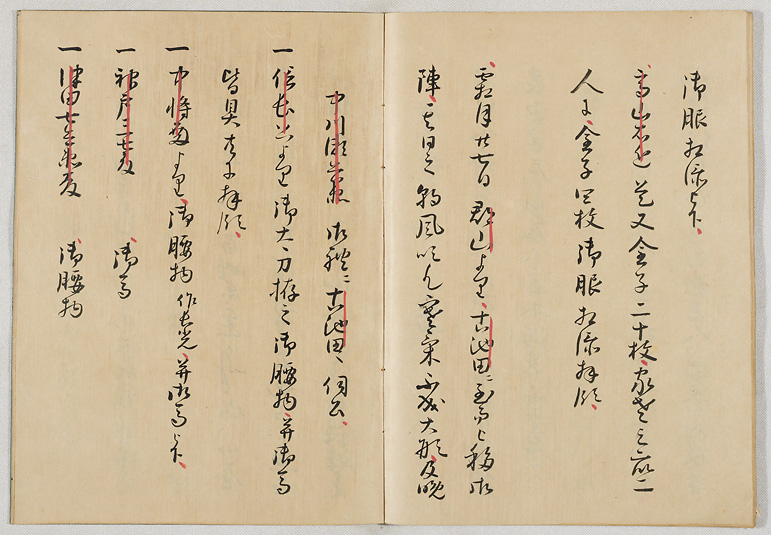 御服相添被下、
高山右近是又金子二十枚、家老之衆二
人に金子四枚御服相添拝領、
霜月廿七日郡山より、古池田ニ至而被移御
陣、其日之朝風吹寒気不成大形、及晩
中川瀬兵衛 御礼ニ古池田へ伺公、
一信長公より御太刀拵之御腰物、并御馬
皆具共に拝領、
一中将殿より、御腰物作長光、并御馬被下、
一神戸三七殿 御馬
一津田七兵衛殿 御腰物